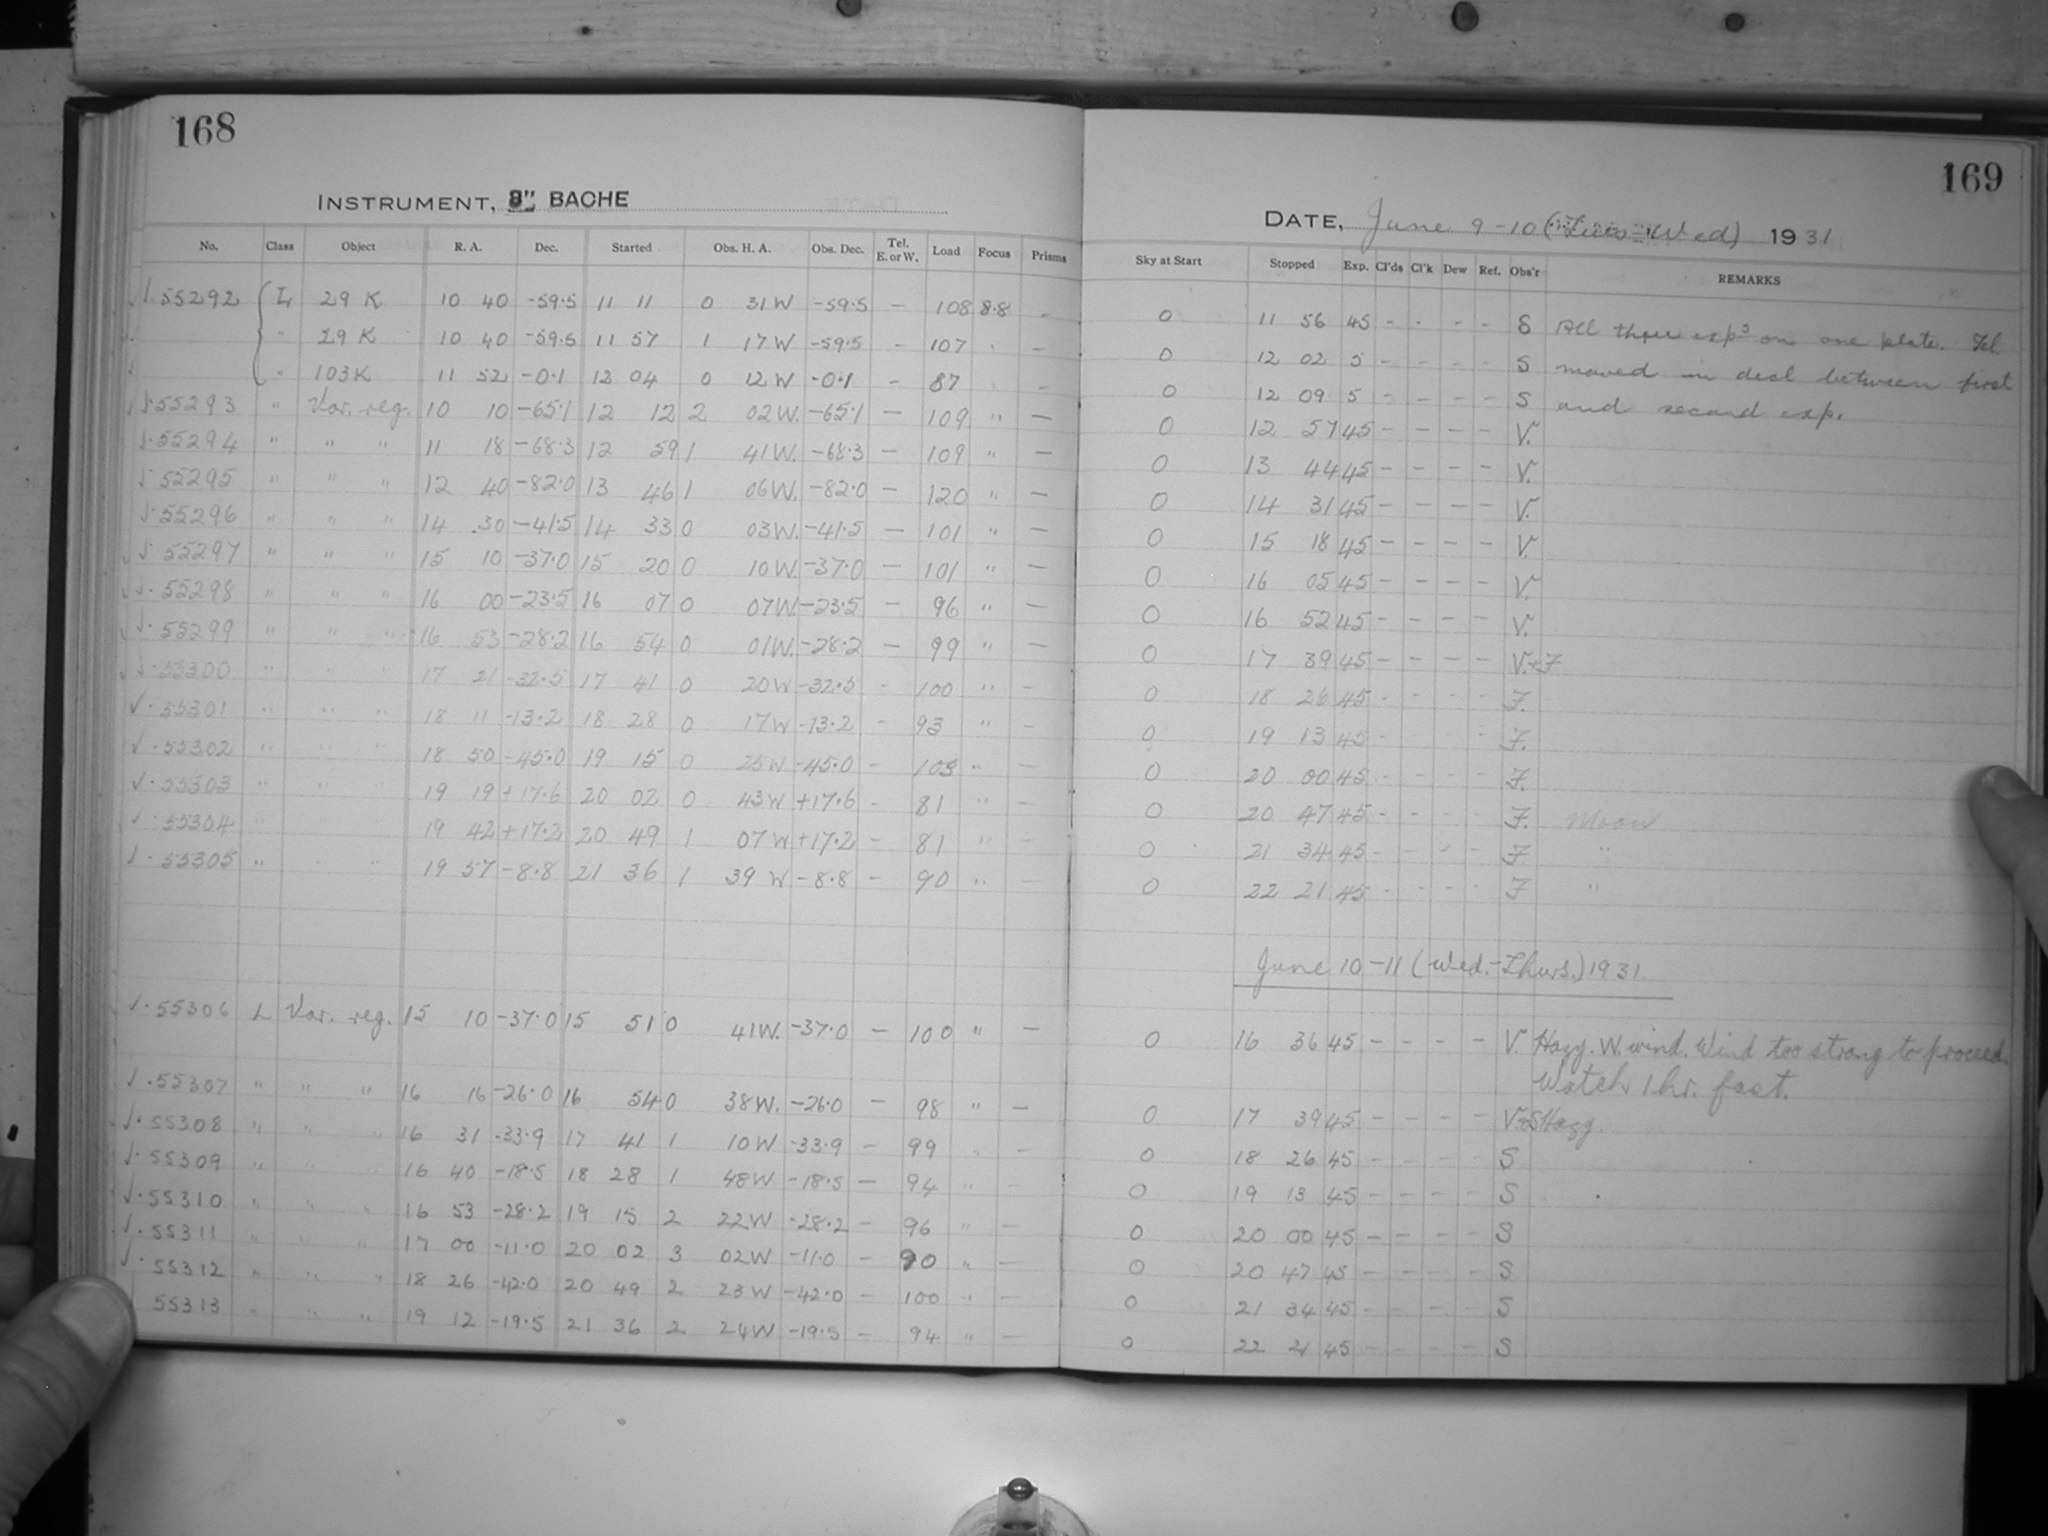 168
INSTRUMENT, 8" BACHE
No. Class Object R. A. Dec. Started Obs. H. A. Obs. Dec. Tel. E. or W. Load Focus Prisms
√ 55292 L 29 K 10 40 -59.5 11 11 0 31 W -59.5 - 108 8.8 -
" 29 K 10 40 -59.5 11 57 1 17 W -59.5 - 107 " -
" 103 K 11 52 -0.1 12 04 0 12 W -0.1 - 87 " -
√ 55293 " Var. reg. 10 10 -65.1 12 12 2 02 W. -65.1 - 109 " -
√ 55294 " " " 11 18 -68.3 12 59 1 41 W. -68.3 - 109 " -
√ 55295 " " " 12 40 -82.0 13 46 1 06 W. -82.0 - 120 " -
√ 55296 " " " 14 30 -41.5 14 33 0 03 W. -41.5 - 101 " -
√ 55297 " " " 15 10 -37.0 15 20 0 10 W. -37.0 - 101 " -
√ 55298 " " " 16 00 -23.5 16 07 0 07 W. -23.5 - 96 " -
√ 55299 " " " 16 53 -28.2 16 54 0 01 W. -28.2 - 99 " -
√ 55300 " " " 17 21 -32.5 17 41 0 20 W -32.5 - 100 " -
√ 55301 " " " 18 11 -13.2 18 28 0 17 W -13.2 - 93 " -
√ 55302 " " " 18 50 -45.0 19 15 0 25 W -45.0 - 103 " -
√ 55303 " " " 19 19 +17.6 20 02 0 43 W +17.6 - 81 " -
√ 55304 " " " 19 42 +17.2 20 49 1 07 W +17.2 - 81 " -
√ 55305 " " " 19 57 -8.8 21 36 1 39 W -8.8 - 90 " -
√ 55306 L Var. reg. 15 10 -37.0 15 51 0 41 W. -37.0 - 100 " -
√ 55307 " " " 16 16 -26.0 16 54 0 38 W. -26.0 - 98 " -
√ 55308 " " " 16 31 -33.9 17 41 1 10 W -33.9 - 99 " -
√ 55309 " " " 16 40 -18.5 18 28 1 48 W -18.5 - 94 " -
√ 55310 " " " 16 53 -28.2 19 15 2 22 W -28.2 - 96 " -
√ 55311 " " " 17 00 -11.0 20 02 3 02 W -11.0 - 90 " -
√ 55312 " " " 18 26 -42.0 20 49 2 23 W -42.0 - 100 " -
55313 " " " 19 12 -19.5 21 36 2 24 W -19.5 - 94 " -
169
DATE, June 9-10 (Tues-Wed) 1931
Sky at Start Stopped Exp. Cl'ds Cl'k Dew Ref. Obs'r REMARKS
0 11 56 45 - - - - S All three exps on one plate. Tel
0 12 02 5 - - - - S moved in decl between first
0 12 09 5 - - - - S and second exp.
0 12 57 45 - - - - V.
0 13 44 45 - - - - V.
0 14 31 45 - - - - V.
0 15 18 45 - - - - V.
0 16 05 45 - - - - V.
0 16 52 45 - - - - V.
0 17 39 45 - - - - V.+F
0 18 26 45 - - - - F.
0 19 13 45 - - - - F.
0 20 00 45 - - - - F.
0 20 47 45 - - - - F. Moon
0 21 34 45 - - - - F "
0 22 21 45 - - - - F "
June 10-11 (Wed.-Thurs.) 1931.
0 16 36 45 - - - - V. Hazy. W. wind. Wind too strong to proceed.
Watch 1 hr. fast.
0 17 39 45 - - - - V+S Hazy.
0 18 26 45 - - - - S
0 19 13 45 - - - - S
0 20 00 45 - - - - S
0 20 47 45 - - - - S
0 21 34 45 - - - - S
0 22 21 45 - - - - S